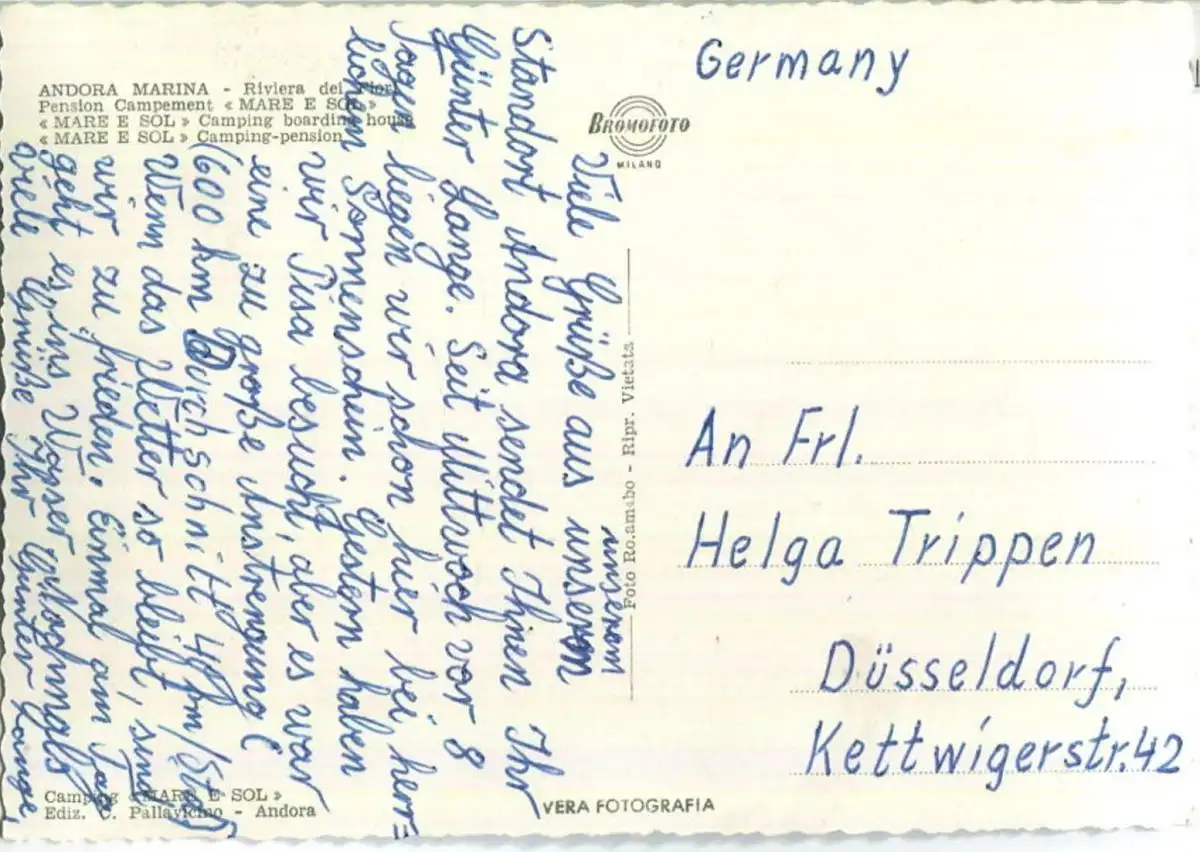 Germany
ANDORA MARINA - Riviera dei Fiori
Pension Campement « MARE E SOL »
« MARE E SOL » Camping boarding house
« MARE E SOL » Camping-pension
BROMOFOTO
MILANO
Viele Grüße aus unserem
unseren
Standort Andora sendet Ihnen Ihr
Günter Lange. Seit Mittwoch vor 8
Tagen liegen wir schon hier bei herr=
lichem Sonnenschein. Gestern haben
wir Pisa besucht, aber es war
eine zu große Anstrengung
(600 km Durchschnitt 48 km/Std)
Wenn das Wetter so bleibt, sind
wir zufrieden. Einmal am Tag
geht es ins Wasser
viele Grüße Ihr Günter Lange
Foto - Ripr. Vietata
An Frl.
Helga Trippen
Düsseldorf,
Kettwigerstr. 42
Camping «MARE E SOL»
Ediz. C. Pallavicino - Andora
VERA FOTOGRAFIA